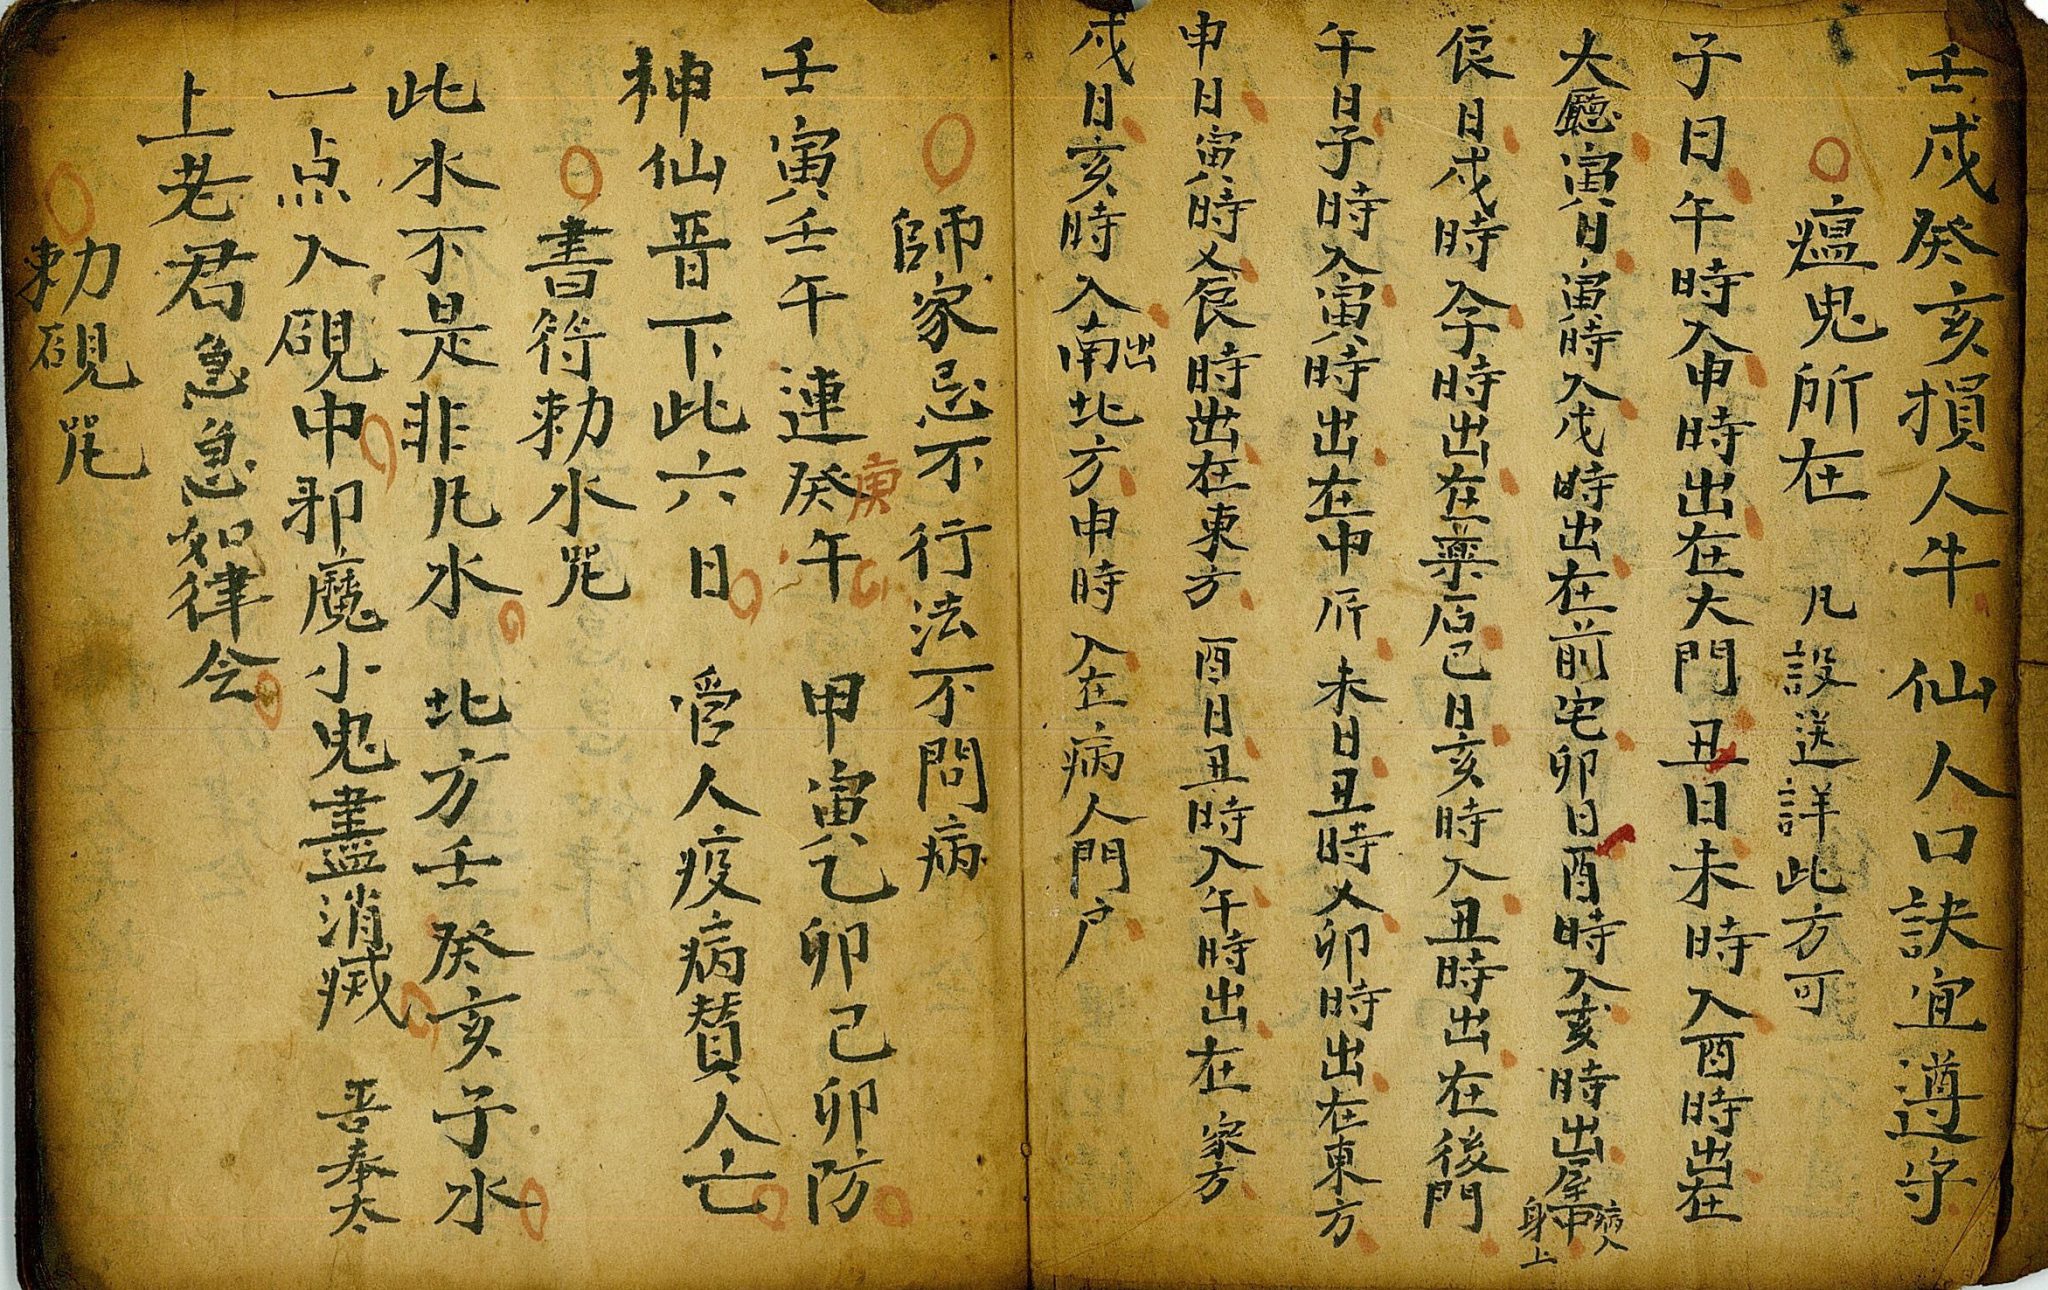 壬戌癸亥損人牛 仙人口訣宜遵守
瘟鬼所在 凡設送詳此方可
子日午時入申時出在大門 丑日未時入酉時出在
大廳 寅日寅時入戌時出在前宅卯日酉時入亥時出屋中病人身上
辰日戌時入子時出在藥店巳日亥時入丑時出在後門
午日子時入寅時出在中所 未日丑時入卯時出在東方
申日寅時入辰時出在東方 酉日丑時入午時出在家方
戌日亥時入出南北方申時入在病人門户
師家忌不行法不問病
壬寅壬午連癸庚午 甲寅乙卯己卯防
神仙晋下此六日 管人疫病替人亡
書符勅水咒
此水不是非凡水 北方壬癸亥子水
一点入硯中邪魔小鬼盡消滅 吾奉太
上老君急急如律令
勅硯咒